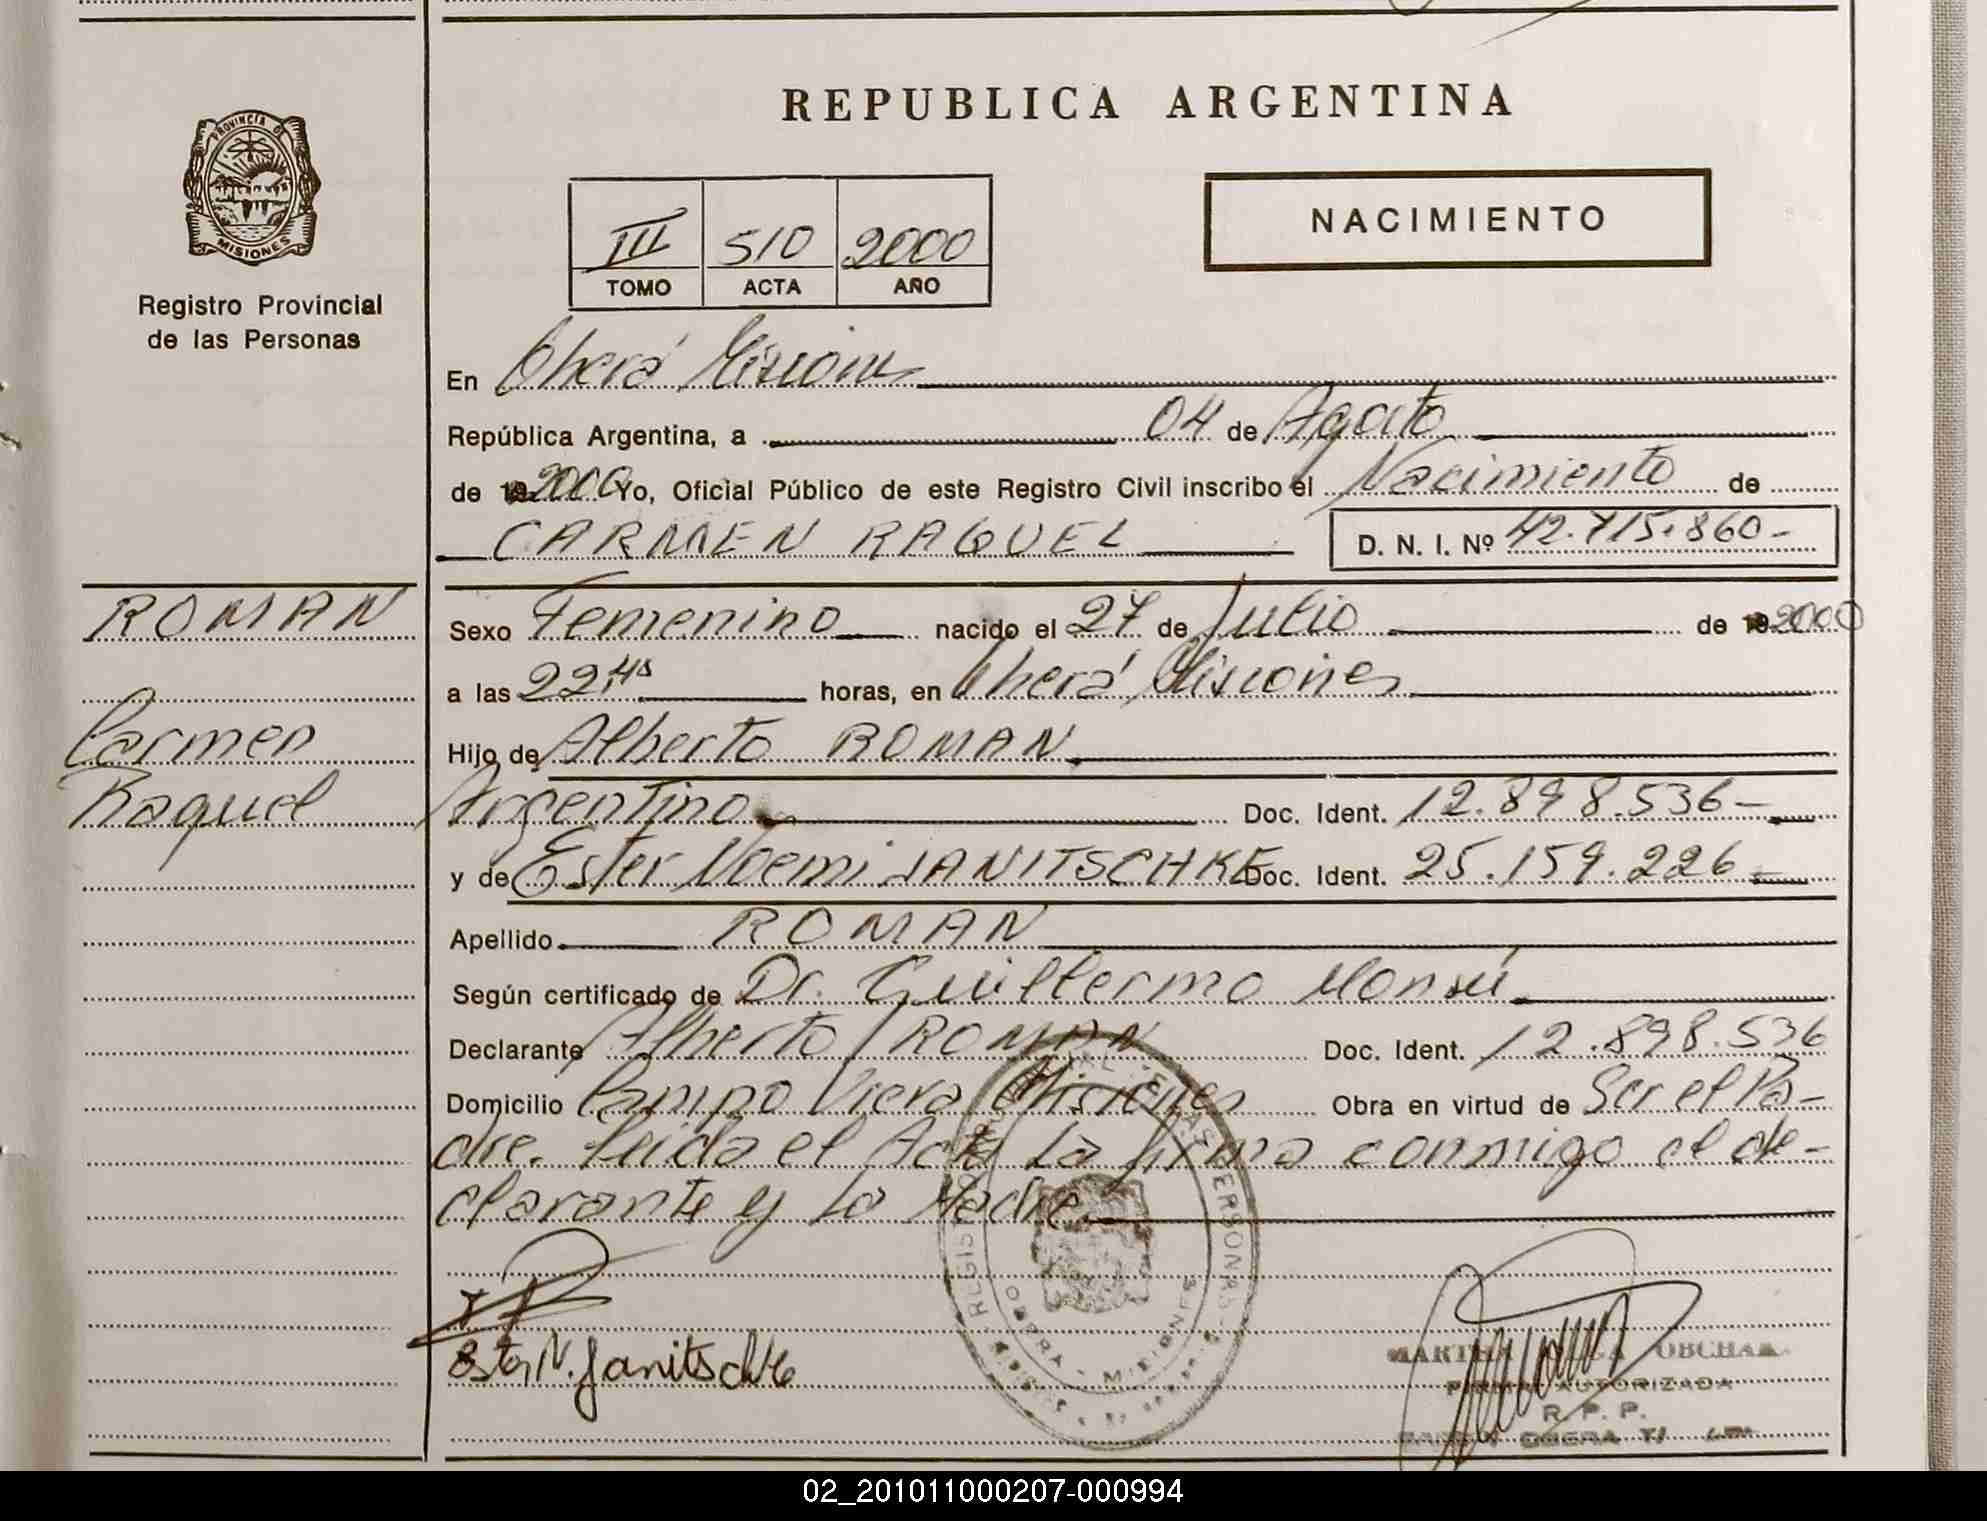 REPUBLICA ARGENTINA
PROVINCIA DE
MISIONES
Registro Provincial
de las Personas
NACIMIENTO
III 510 2000
TOMO ACTA AÑO
En Oberá Misiones
República Argentina, a 04 de Agosto
de 19 2000 Yo, Oficial Público de este Registro Civil inscribo el Nacimiento de
CARMEN RAQUEL D. N. I. Nº 42.715.860-
ROMAN
Carmen
Raquel
Sexo Femenino nacido el 27 de Julio de 19 2000
a las 22,45 horas, en Oberá Misiones
Hijo de Alberto ROMAN
Argentino Doc. Ident. 12.898.536-
y de Ester Noemi JANITSCHKE Doc. Ident. 25.159.226-
Apellido ROMAN
Según certificado de Dr. Guillermo Monsú
Declarante Alberto ROMAN Doc. Ident. 12.898.536
Domicilio Campo Viera Misiones Obra en virtud de Ser el Pa-
dre. Leida el Acta La firma conmigo el de-
clarante y La Madre
Ester N. Janitschke
OBERA - MISIONES
MARTHA OLGA OBCHAR
FIRMA AUTORIZADA
R. P. P.
02_201011000207-000994